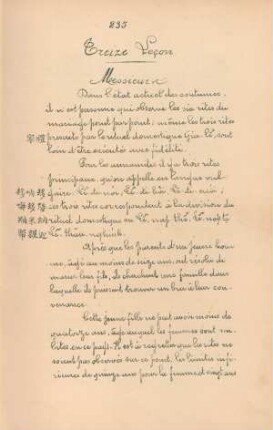 235
Treize Leçon
Messieurs
Dans l'état actuel des coutumes,
il n'est personne qui observe les six rites du
mariage point par point; même les trois rites
家禮
prescrits par le rituel domestique Gia lễ, sont
loin d'être exécutés avec fidélité.
Pour les annamites il y a trois rites
principaux, qu'on appelle en langue vul-
gaire
ces trois rites correspondent à la division du
rituel domestique en Lễ
Lễ thân nghinh.
Après que les parents d'un jeune hom-
me, âgé au moins de seize ans, ont résolu de
marier leur fils, ils cherchent une famille dans
laquelle ils puissent trouver un bru à leur con-
venance.
Cette jeune fille ne peut avoir moins de
quatorze ans, âge auquel les femmes sont nu-
biles en ce pays. Il est à regretter que les rites ne
soient pas observés sur ce point. Les limites infé-
rieures de quinze ans pour la femme et vingt ans